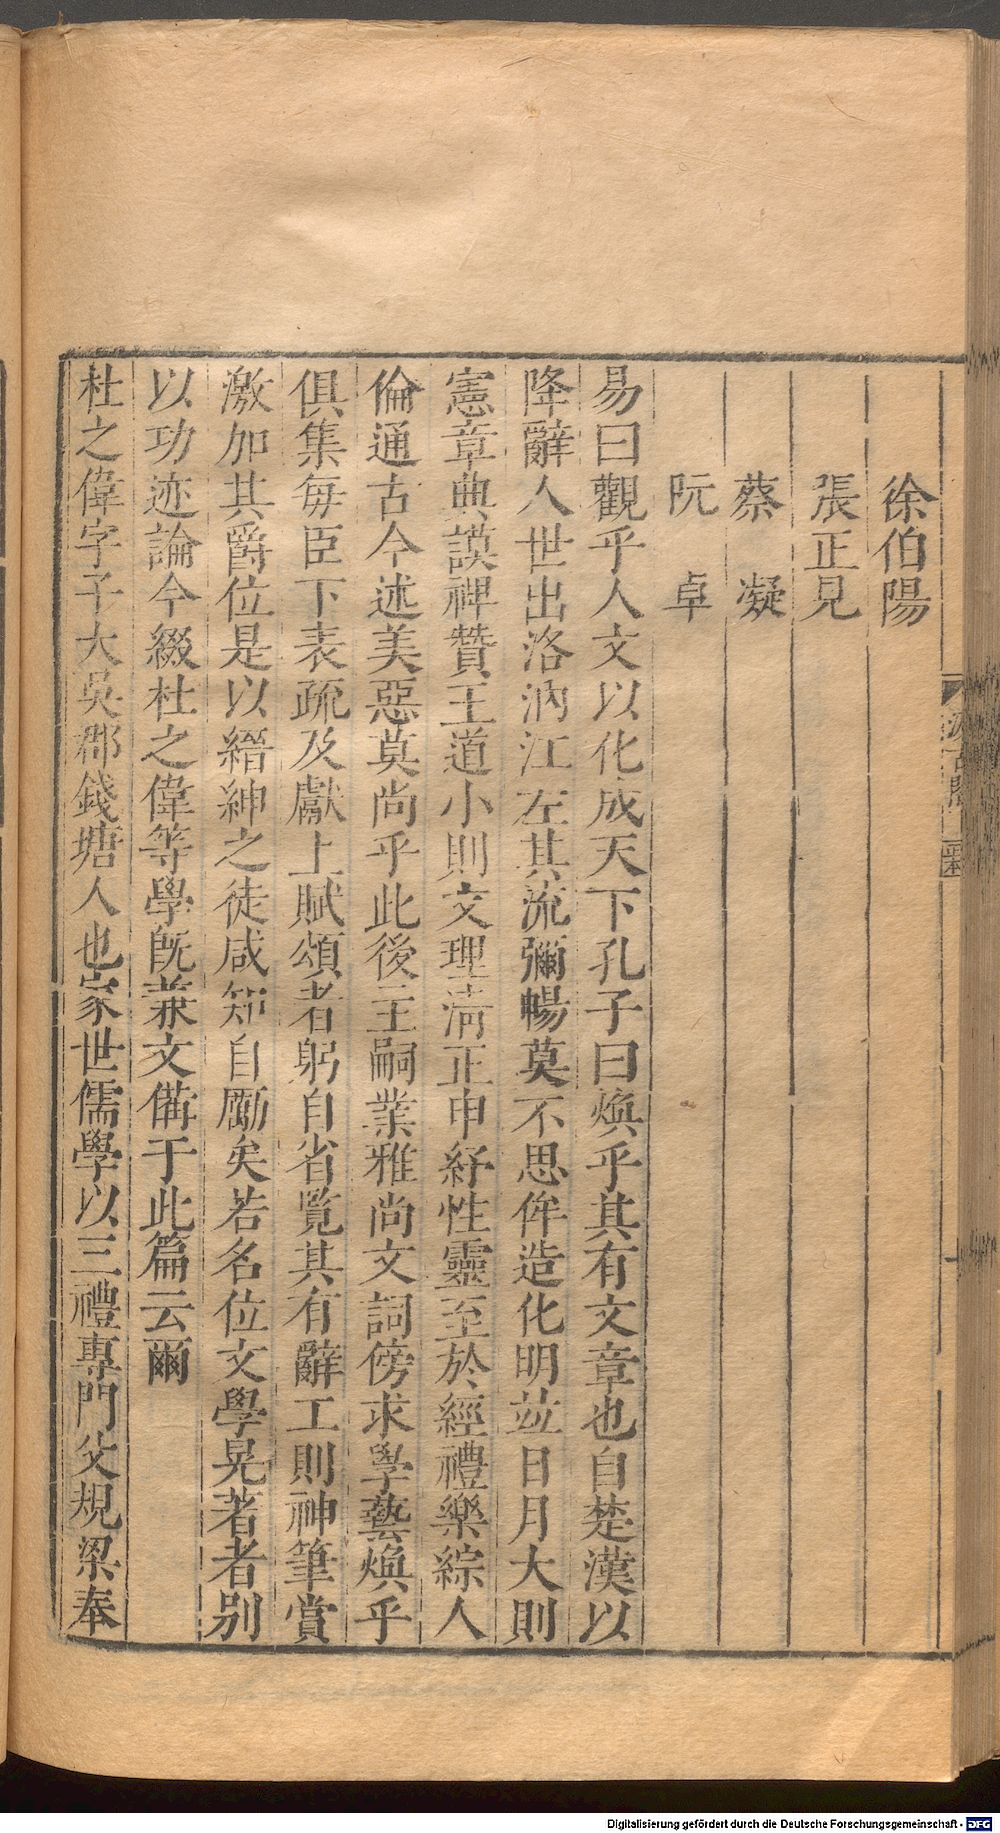 徐伯陽
張正見
蔡凝
阮卓
易曰觀乎人文以化成天下孔子曰煥乎其有文章也自楚漢以
降辭人世出洛汭江左其流彌暢莫不思侔造化明竝日月大則
憲章典謨裨贊王道小則文理清正申紓性靈至於經禮樂綜人
倫通古今述美惡莫尚乎此後主嗣業雅尚文詞傍求學藝煥乎
俱集每臣下表疏及獻上賦頌者躬自省覽其有辭工則神筆賞
激加其爵位是以縉紳之徒咸知自勵矣若名位文學晃著者別
以功迹論今綴杜之偉等學旣兼文備于此篇云爾
杜之偉字子大吳郡錢塘人也家世儒學以三禮專門父規梁奉
Digitalisierung gefördert durch die Deutsche Forschungsgemeinschaft - DFG